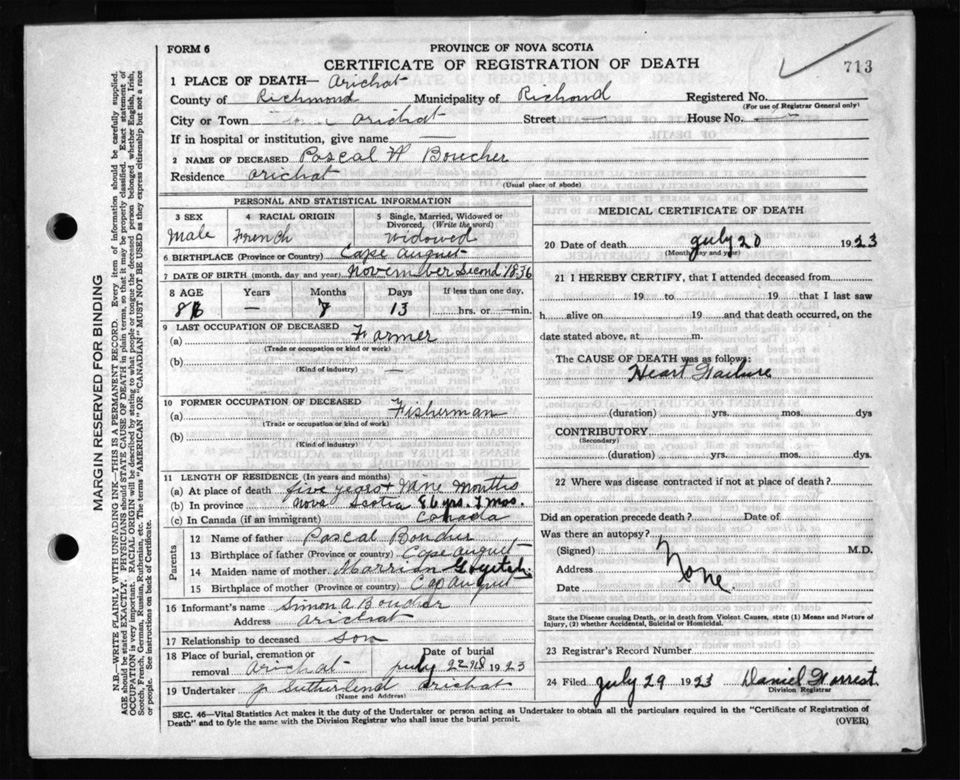 FORM 6
PROVINCE OF NOVA SCOTIA
CERTIFICATE OF REGISTRATION OF DEATH
713
1 PLACE OF DEATH— Arichat
County of Richmond Municipality of Richond Registered No.
(For use of Registrar General only)
City or Town Arichat Street House No.
If in hospital or institution, give name
2 NAME OF DECEASED Pascal W Boucher
Residence Arichat
(Usual place of abode)
PERSONAL AND STATISTICAL INFORMATION
3 SEX 4 RACIAL ORIGIN 5 Single, Married, Widowed or Divorced. (Write the word)
Male French Widowed
6 BIRTHPLACE (Province or Country) Cape August
7 DATE OF BIRTH (month, day and year) November Second 1836
8 AGE Years Months Days If less than one day,
86 — 8 13 hrs. or —min.
9 LAST OCCUPATION OF DECEASED
(a) Farmer
(Trade or occupation or kind or work)
(b) —
(Kind of industry)
10 FORMER OCCUPATION OF DECEASED
(a) Fisherman
(Trade or occupation or kind or work)
(b)
(Kind of industry)
11 LENGTH OF RESIDENCE (In years and months)
(a) At place of death five years + Nine Months
(b) In province Nova Scotia 86 yrs. 7 mos.
(c) In Canada (if an immigrant) Canada
Parents
12 Name of father Pascal Boucher
13 Birthplace of father (Province or country) Cape August
14 Maiden name of mother Marrian
15 Birthplace of mother (Province or country) Cap August
16 Informant's name Simon A Boucher
Address Arichat
17 Relationship to deceased Son
18 Place of burial, cremation or removal Arichat
Date of burial July 22nd 1923
19 Undertaker J Sutherland Arichat
(Name and Address)
MEDICAL CERTIFICATE OF DEATH
20 Date of death July 20 1923
(Month, day and year)
21 I HEREBY CERTIFY, that I attended deceased from
19 to 19 that I last saw
h alive on 19 and that death occurred, on the
date stated above, at m.
The CAUSE OF DEATH was as follows:
Heart Failure
(duration) yrs. mos. dys
CONTRIBUTORY
(Secondary)
(duration) yrs. mos. dys.
22 Where was disease contracted if not at place of death?
Did an operation precede death? Date of
Was there an autopsy?
(Signed) M.D.
Address None
Date
State the Disease causing Death, or in death from Violent Causes, state (1) Means and Nature of
Injury, (2) whether Accidental, Suicidal or Homicidal.
23 Registrar's Record Number
24 Filed July 29 1923 Daniel Forrest
Division Registrar
SEC. 46—Vital Statistics Act makes it the duty of the Undertaker or person acting as Undertaker to obtain all the particulars required in the "Certificate of Registration of
Death" and to fyle the same with the Division Registrar who shall issue the burial permit.
(OVER)
MARGIN RESERVED FOR BINDING
N.B.—WRITE PLAINLY WITH UNFADING INK—THIS IS A PERMANENT RECORD. Every item of information should be carefully supplied.
AGE should be stated EXACTLY. PHYSICIANS should STATE CAUSE OF DEATH in plain terms, so that it may be properly classified. Exact statement of
OCCUPATION is very important. RACIAL ORIGIN will be described by stating to what people or tongue the deceased person belonged whether English, Irish,
Scotch, French, German, Russian, Ruthenian, etc. The terms "AMERICAN" or "CANADIAN" MUST NOT BE USED as they express citizenship but not a race
or people. See instructions on back of Certificate.